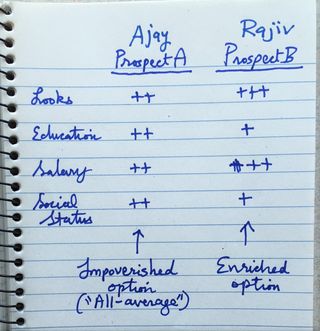 Ajay Rajiv
Prospect A Prospect B
Looks ++ +++
Education ++ +
Salary ++ ++
Social ++ +
Status
Impoverished Enriched
option option
("All-average")